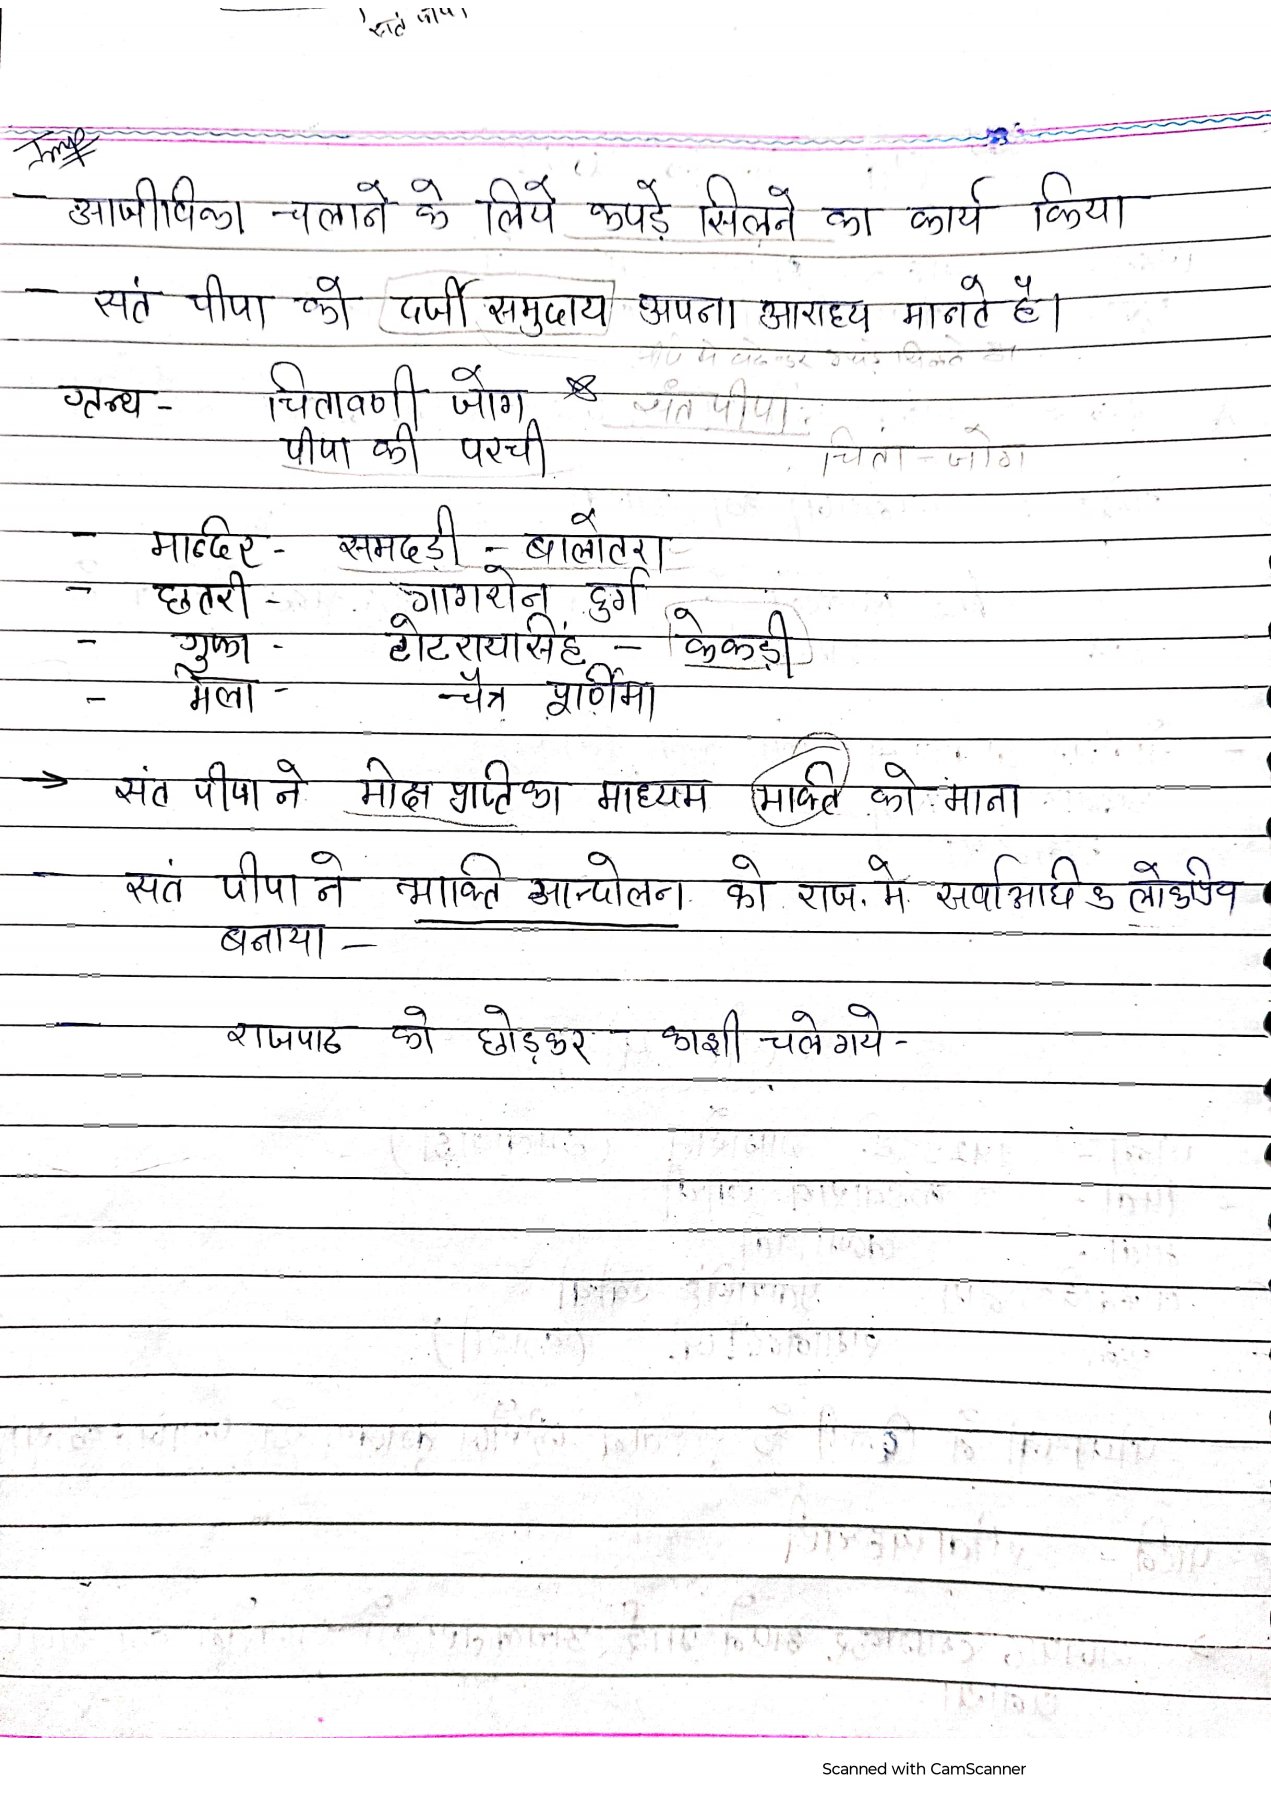 संत पीपा
Imp
- आजीविका चलाने के लिये कपड़े सिलने का कार्य किया
- सतं पीपा को दर्जी समुदाय अपना आराध्य मानते है।
ग्रन्थ - चितावणी जोग संत पीपा:
पीपा की परची चिता - जोग
- मन्दिर - समदड़ी - बालोतरा
- छतरी - गागरोन दुर्ग
- गुफा - टोटरायसिंह - केकड़ी
- मेला - चैत्र पूर्णिमा
→ संत पीपा ने मोक्ष प्राप्ति का माध्यम भक्ति को माना
- सतं पीपा ने भाक्ति आन्दोलन को राज. मे सर्वाआधिक लोकप्रिय
बनाया -
- राजपाट को छोड़कर काशी चले गये -
Scanned with CamScanner